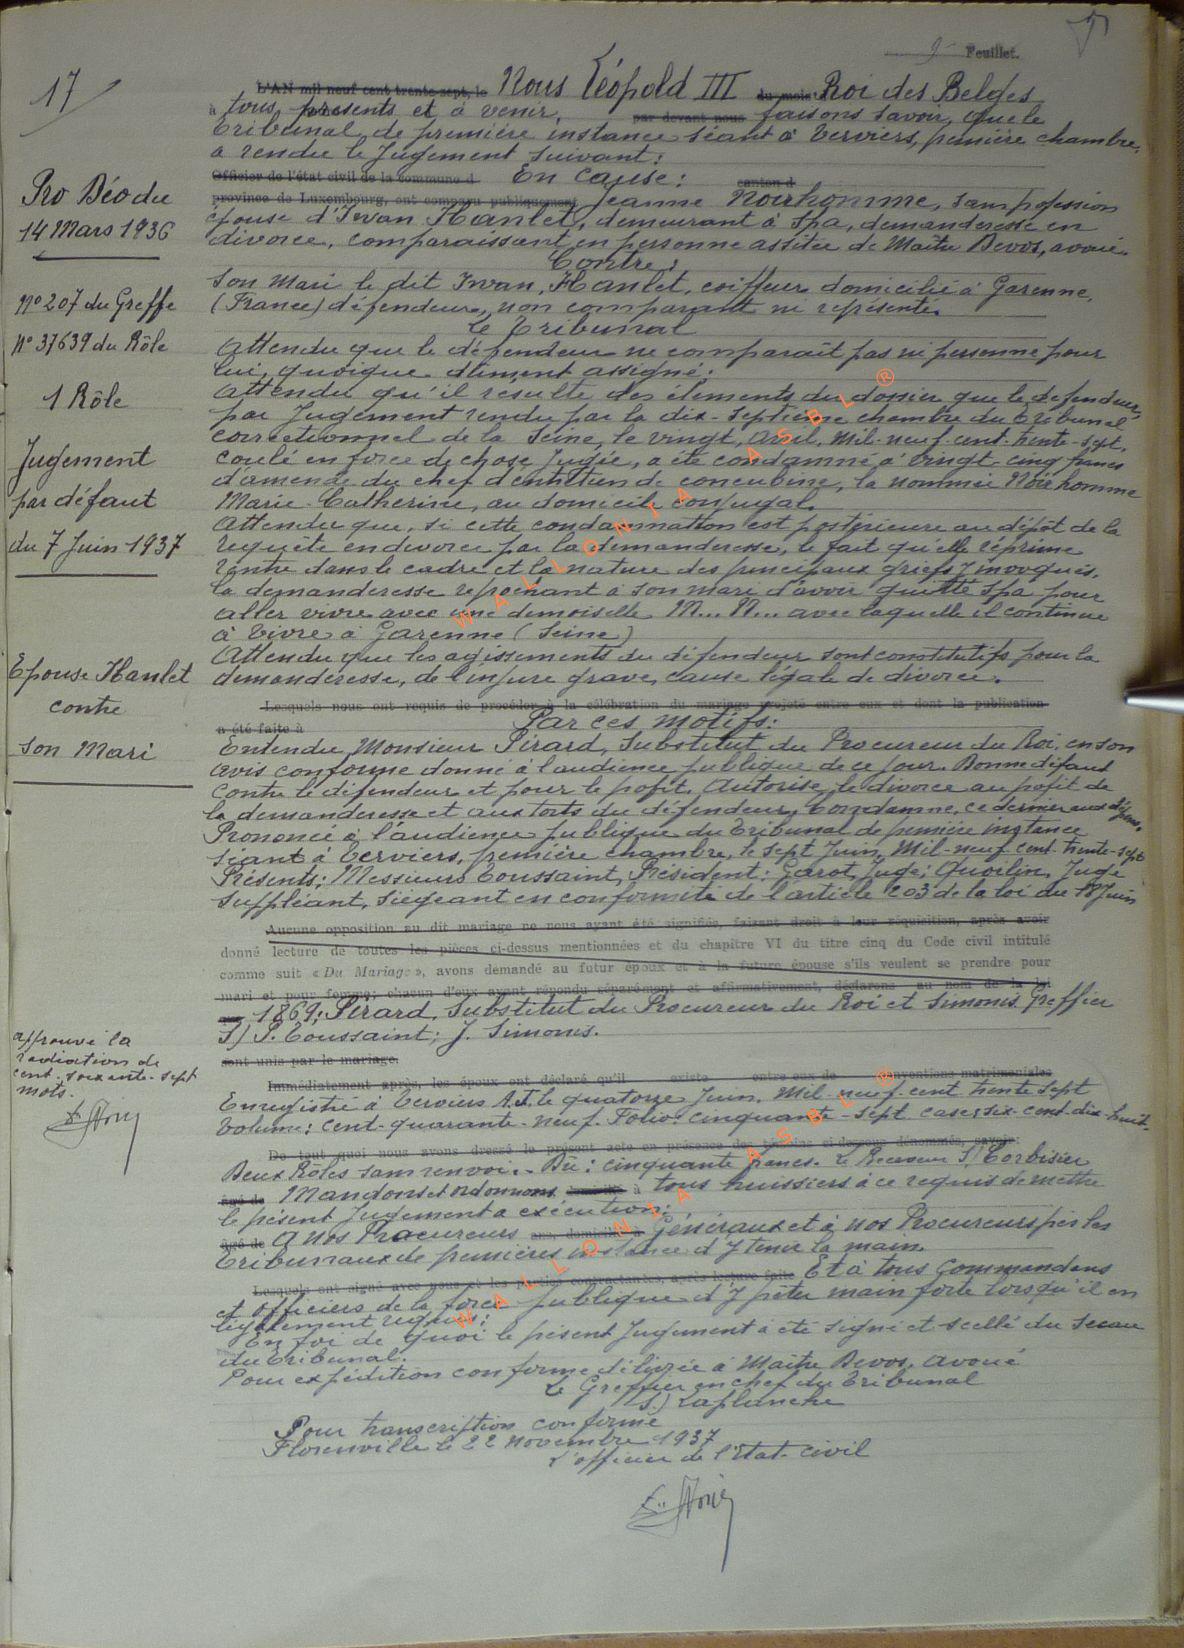 9e Feuillet.
17
L'AN mil neuf cent trente-sept, le Nous Léopold III du mois Roi des Belges
à tous, présents et à venir, par devant nous faisons savoir, que le
Tribunal de première instance séant à Verviers, première chambre,
a rendu le Jugement suivant:
Officier de l'état civil de la commune d En Cause: canton d
province de Luxembourg, ont comparu publiquement Jeanne Noirhomme, sans profession
épouse d'Yvan Hanlet, demeurant à Spa, demanderesse en
divorce, comparaissant en personne assitée de Maître Devos, avoué.
Contre:
Son mari le dit Yvan, Hanlet, coiffeur domicilié à Garenne,
(France) défendeur, non comparant ni représenté.
Le Tribunal
Attendu que le défendeur ne comparaît pas ni personne pour
lui, quoique dûment assigné.
Attendu qu'il résulte des éléments du dossier que le défendeur,
par Jugement rendu par la dix-septième chambre du Tribunal
correctionnel de la Seine, le vingt, Avril, Mil-neuf-cent-trente-sept,
coulé en force de chose Jugée, a été condamné à vingt-cinq francs
d'amende du chef d'entretien de concubine, la nommée Noirhomme
Marie-Catherine, au domicile conjugal.
Attendu que, si cette condamnation est postérieure au dépôt de la
requête en divorce par la demanderesse, le fait qu'elle réprime
rentre dans le cadre et la nature des principaux griefs y invoqués.
la demanderesse reprochant à son mari d'avoir quitté Spa pour
aller vivre avec une demoiselle M... N... avec laquelle il continue
à vivre à Garenne (Seine)
Attendu que les agissements du défendeur sont constitutifs pour la
demanderesse, de l'injure grave, cause légale de divorce.
Lesquels nous ont requis de procéder à la célébration du mariage projeté entre eux et dont la publication
a été faite à Par ces motifs:
Entendu Monsieur Pirard, Substitut du Procureur du Roi, en son
avis conforme donné à l'audience publique de ce jour. Donne défaut
contre le défendeur et pour le profit. Autorise, le divorce au profit de
la demanderesse et aux torts du défendeur. Condamne, ce dernier aux dépens.
Prononcé à l'audience publique du Tribunal de première instance
séant à Verviers, première chambre, le sept Juin, Mil-neuf-cent-trente-sept
Présents: Messieurs Toussaint, Président: Garot, Juge; Quoilin, Juge
Suppléant, siégeant en conformité de l'article 203 de la loi du 18 Juin
Aucune opposition au dit mariage ne nous ayant été signifiée, faisant droit à leur réquisition, après avoir
donné lecture de toutes les pièces ci-dessus mentionnées et du chapitre VI du titre cinq du Code civil intitulé
comme suit « Du Mariage », avons demandé au futur époux et à la future épouse s'ils veulent se prendre pour
mari et pour femme: chacun d'eux ayant répondu séparément et affirmativement, déclarons au nom de la loi
1869; Pirard, Substitut du Procureur du Roi et Simonis. Greffier
S) P. Toussaint; J. Simonis.
sont unis par le mariage.
Immédiatement après, les époux ont déclaré qu'il existe entre eux de conventions matrimoniales
Enregistré à Verviers A.J. le quatorze Juin, Mil-neuf-cent trente sept
Volume: cent-quarante-neuf. Folio: cinquante-sept case: six-cent-dix-huit.
De tout quoi nous avons dressé le présent acte en présence des témoins ci-dessous dénommés, savoir:
Deux Rôles sans renvoi.. Dû: cinquante francs. Le Receveur S/ Corbisier
âgé de Mandons et ordonnons domicilié à tous huissiers à ce requis de mettre
le présent Jugement a exécution;
âgé de A nos Procureurs ans, domicilié à Généraux et à nos Procureurs près les
Tribunaux de premières instance d'y tenir la main.
Lesquels ont signé avec nous et les parties contractantes, après lecture faite Et à tous Commandans
et officiers de la force publique d'y prêter main forte lorsqu'il en
légalement requis:
En foi de quoi le présent Jugement a été signé et scellé du sceau
du Tribunal.
Pour expédition conforme délivrée à Maître Devos, avoué
Le Greffier en chef du Tribunal
S.) Laplanche
Pour transcription conforme
Florenville le 22 Novembre 1937
L'officier de l'Etat-civil
Pro Déo du
14 Mars 1936
N° 207 du Greffe
N° 37639 du Rôle
1 Rôle
Jugement
par défaut
du 7 Juin 1937
Epouse Hanlet
contre
Son Mari
approuvé la
radiation de
cent-soixante-sept
mots.
WALLONIA ASBL ®
WALLONIA ASBL ®